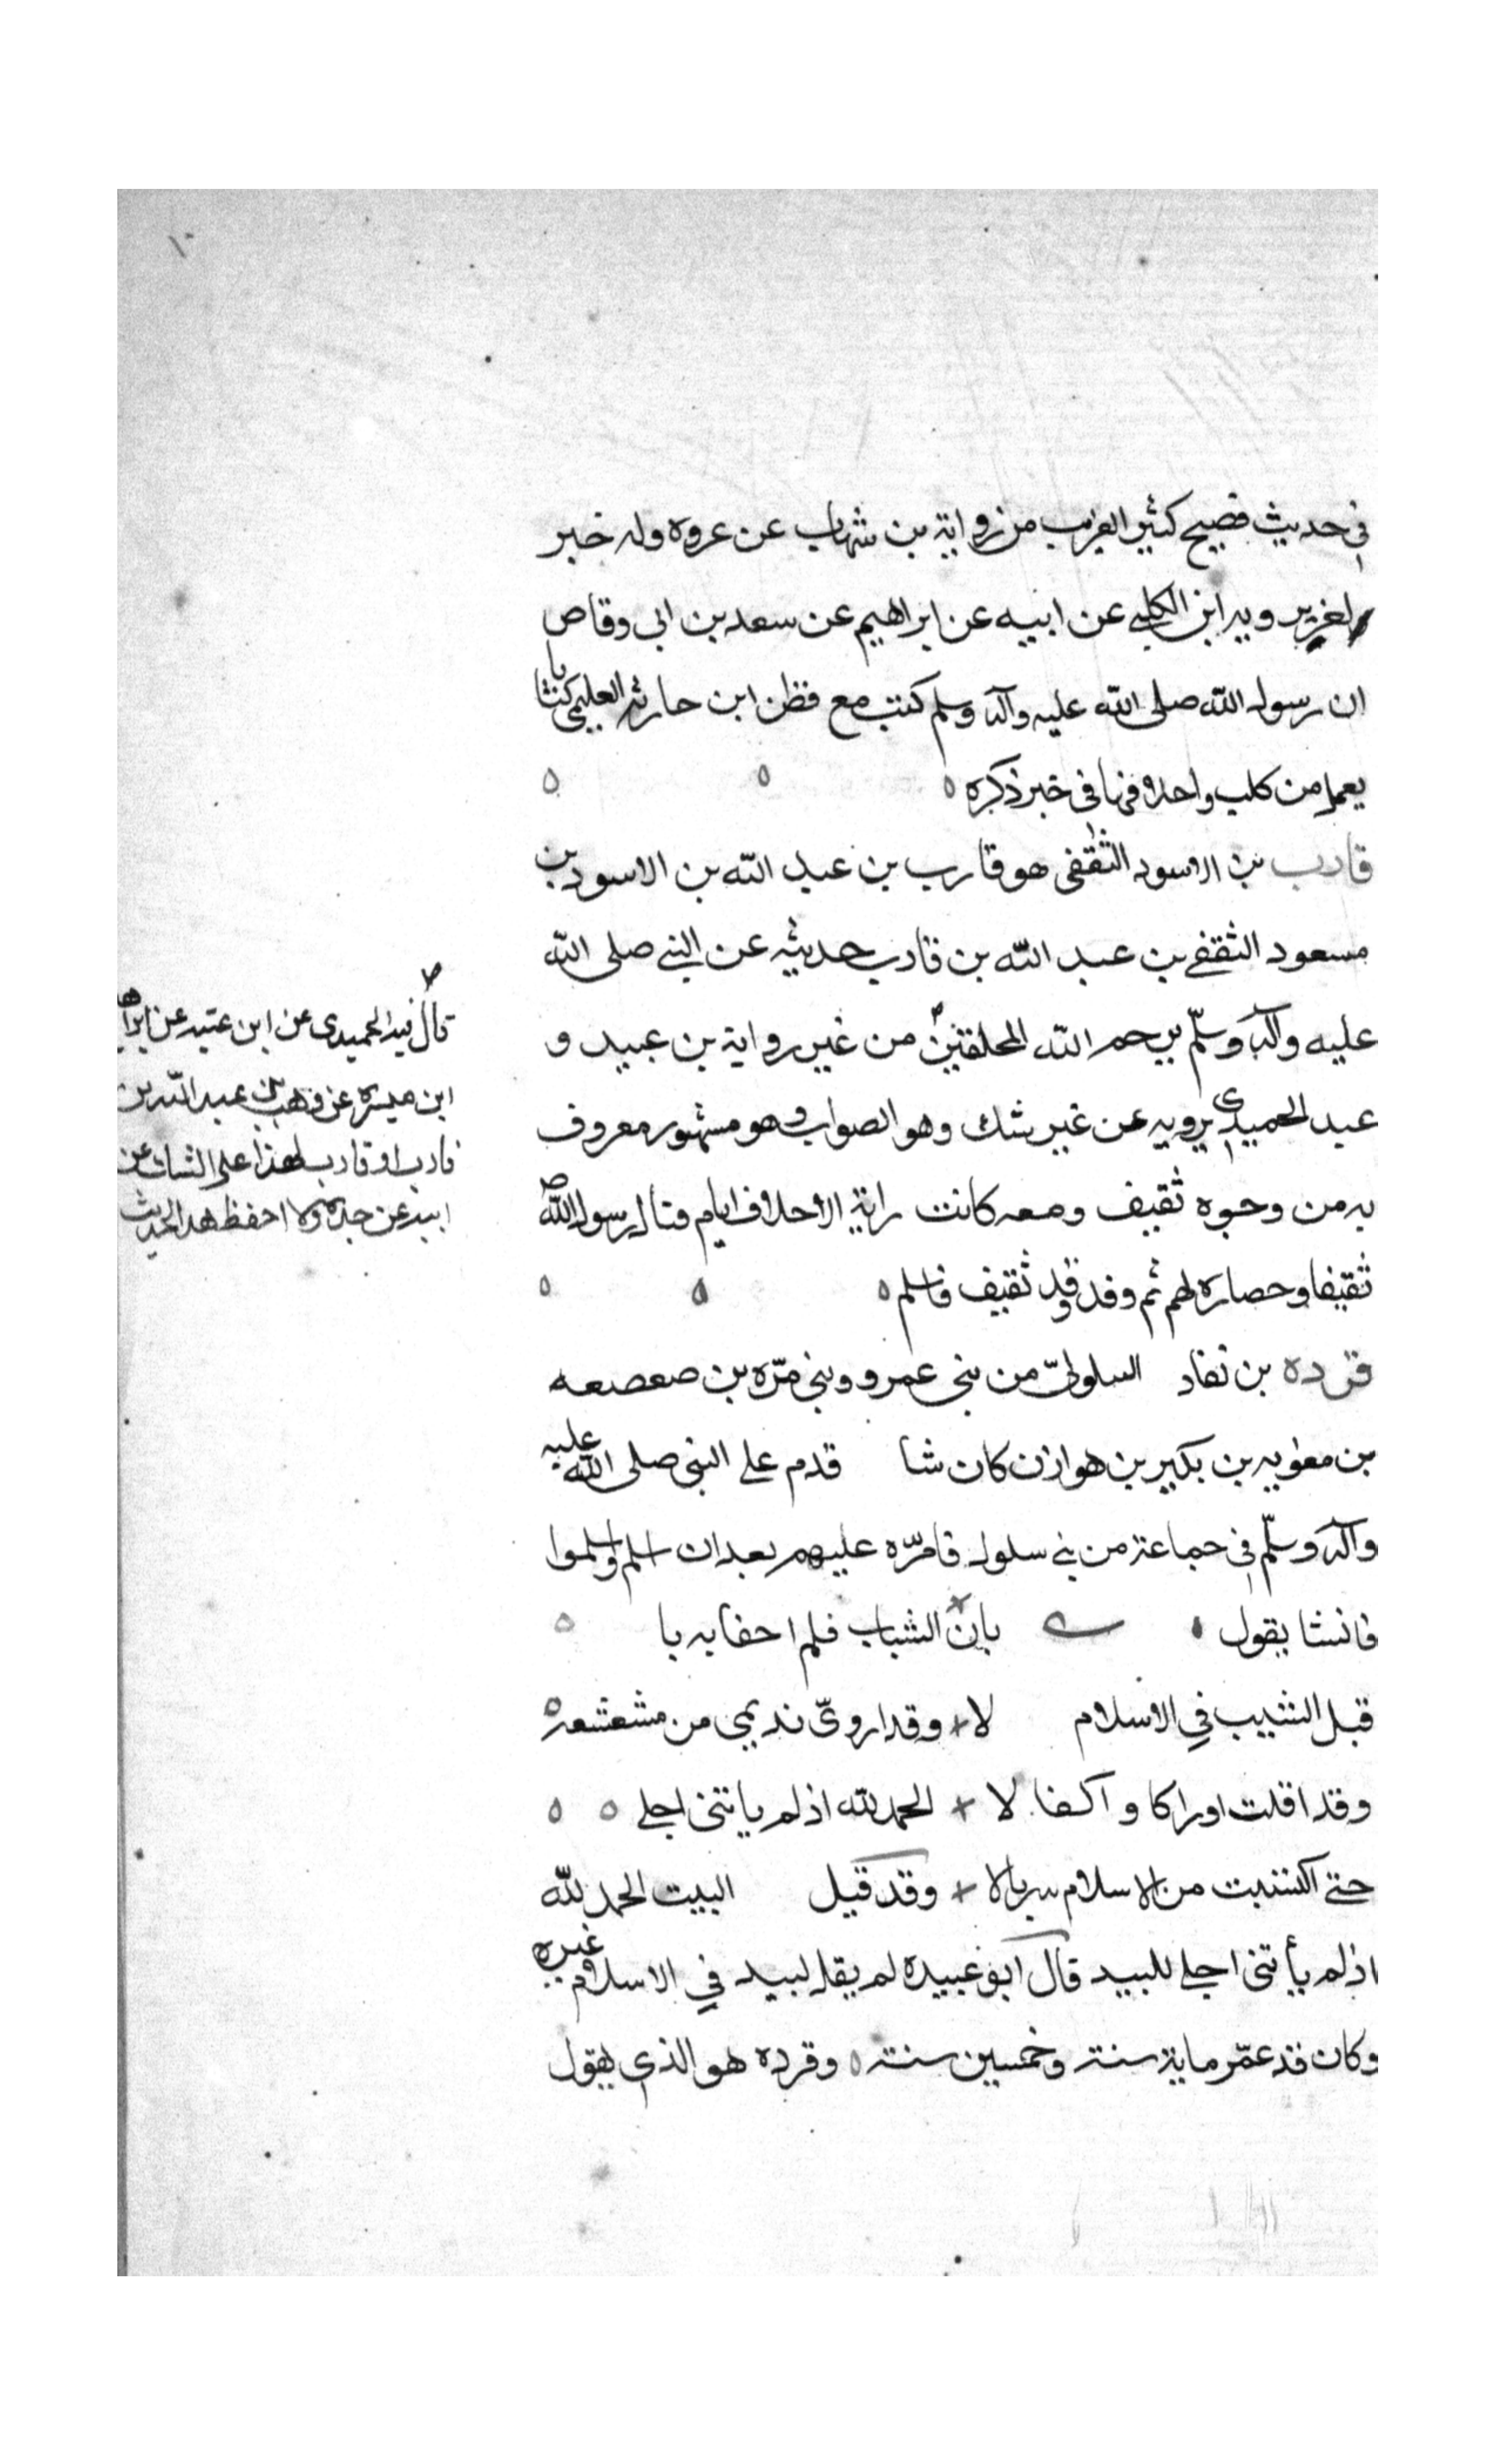 في حديث فصيح كثير الغريب من رواية بن شهاب عن عروه وله خبر
يرويه ابن الكلبي عن ابيه عن ابراهيم عن سعد بن ابي وقاص
ان رسول الله صلى الله عليه وآله وسلم كتب مع قطن ابن حارثه العليمي كتابا
يعمل من كلب واحلافها في خبر ذكره
قارب بن الاسود الثقفي هو قارب بن عبد الله بن الاسود بن
مسعود الثقفي بن عبد الله بن قارب حديثه عن النبي صلى الله
عليه وآله وسلّم يرحم الله المحلقين من غير رواية بن عبيد و
عبد الحميدي يرويه عن غير شك وهو الصواب وهو مشهور معروف
به من وجوه ثقيف ومعه كانت راية الاحلاف ايام قتال رسول الله
ثقيفا وحصاره لهم ثم وفد وفد ثقيف فاسلم
قرده بن نفاد السلوليّ من بني عمرو وبني مرّه بن صعصعه
بن معويه بن بكير بن هوازن كان شا قدم على النبي صلى الله عليه
وآله وسلّم في جماعة من بني سلول فامرّه عليهم بعد ان اسلم واسلموا
فانشا يقول بان الشباب فلم احفا به با
قبل الشيب في الاسلام لا وقد اروىّ نديمي من مشعشعه
وقد اقلت اوراكا واكفا لا الحمد لله اذ لم ياتني اجلي
حتى اكتسيت من الاسلام سربالا وقد قيل البيت الحمد لله
اذ لم يأتني اجلي للبيد قال ابو عبيده لم يقل لبيد في الاسلام غيره
وكان قد عمّر ماية سنة وخمسين سنة وقرده هو الذي يقول
قال فيه الحميدي عن ابن عتيه عن ابراه
ابن ميسره عن وهب بن عبد الله بن
قارب او قارب لهذا على الشك عن
ابيه عن جده ولا احفظ هدا الحديث